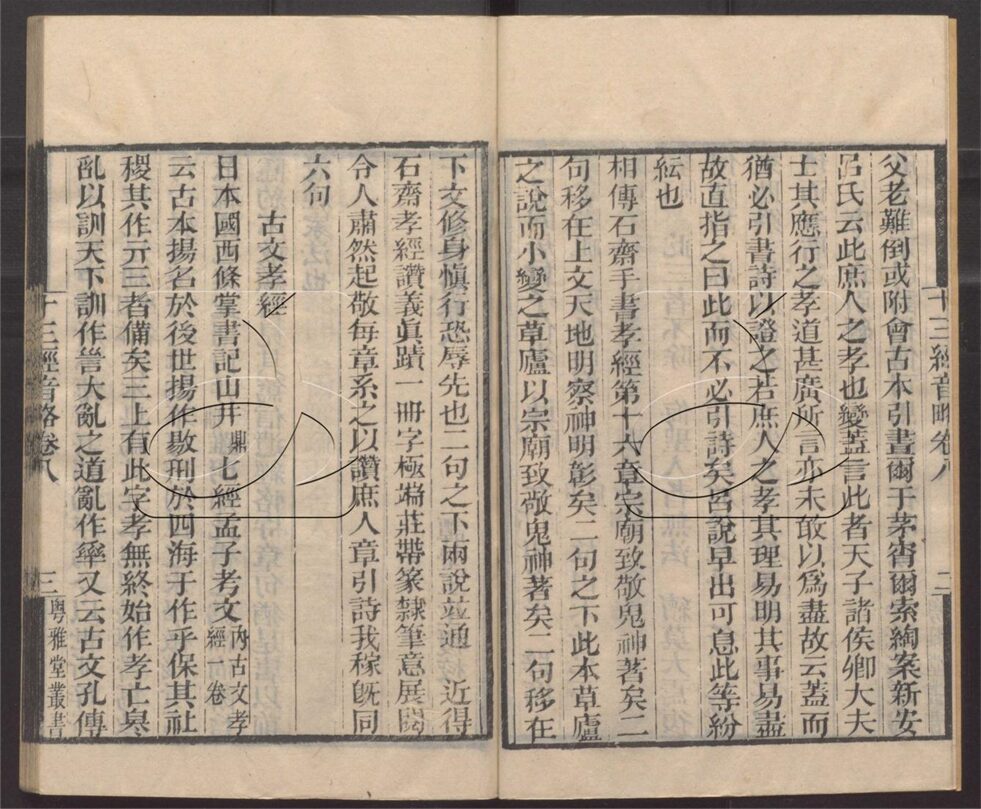 父老難倒或附會古本引晝爾于茅宵爾索綯案新安
呂氏云此庶人之孝也變蓋言此者天子諸侯卿大夫
士其應行之孝道甚廣所言亦未敢以爲盡故云蓋而
猶必引書詩以證之若庶人之孝其理易明其事易盡
故直指之曰此而不必引詩矣呂說早出可息此等紛
紜也
相傳石齋手書孝經第十六章宗廟致敬鬼神著矣二
句移在上文天地明察神明彰矣二句之下此本草廬
之說而小變之草廬以宗廟致敬鬼神著矣二句移在
十三經音略卷八
二
下文修身愼行恐辱先也二句之下兩說並通 近得
石齋孝經讚義眞蹟一冊字極端莊帶篆隸筆意展閱
令人肅然起敬每章系之以讚庶人章引詩我稼旣同
六句
古文孝經
日本國西條掌書記山井鼎七經孟子考文內古文孝經一卷
云古本揚名於後世揚作敭刑於四海于作乎保其社
稷其作亓三者備矣三上有此字孝無終始作孝亡
亂以訓天下訓作 大亂之道亂作 又云古文孔傳
十三經音略卷八
三
粵雅堂叢書